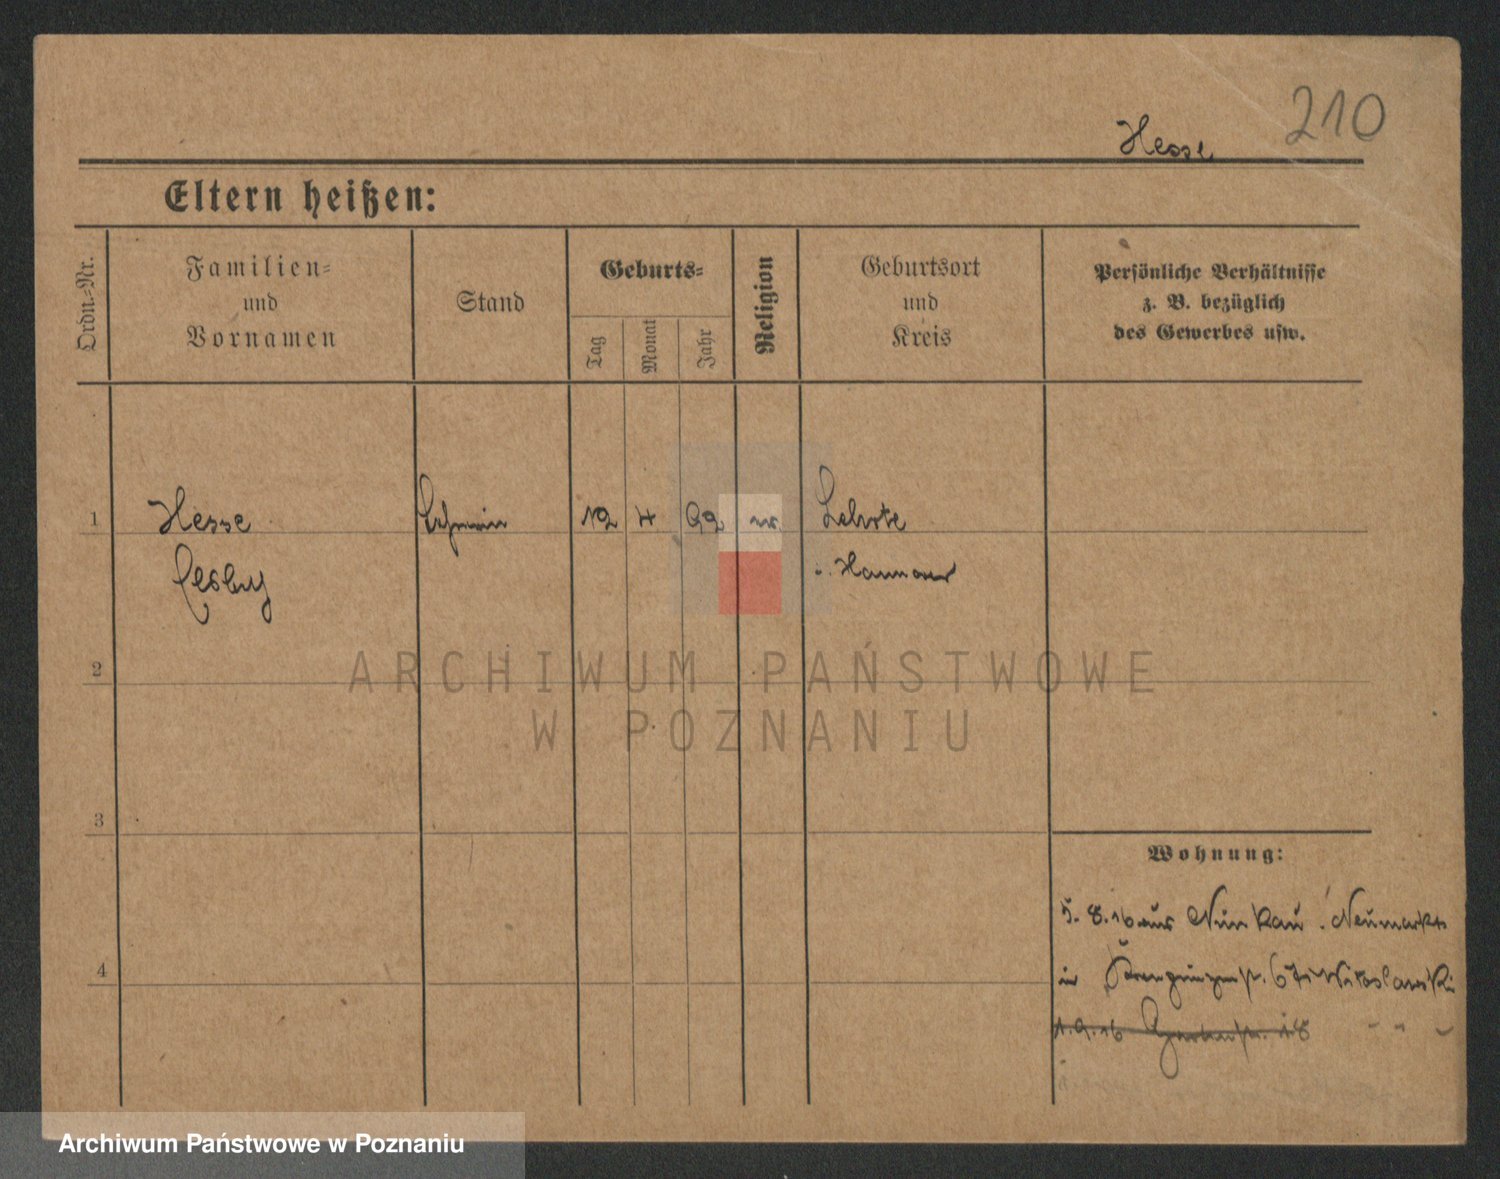 210
Hesse
Eltern heißen:
Ordn.-Nr.
Familien-
und
Vornamen
Stand
Geburts-
Tag
Monat
Jahr
Religion
Geburtsort
und
Kreis
Persönliche Verhältnisse
z. B. bezüglich
des Gewerbes usw.
1 Hesse 12 4 92 Lehrte
i. Hannover
2
3
4
Wohnung:
5.8.16 aus Neumarkt
in
1.9.16 18
ARCHIWUM PAŃSTWOWE
W POZNANIU
Archiwum Państwowe w Poznaniu